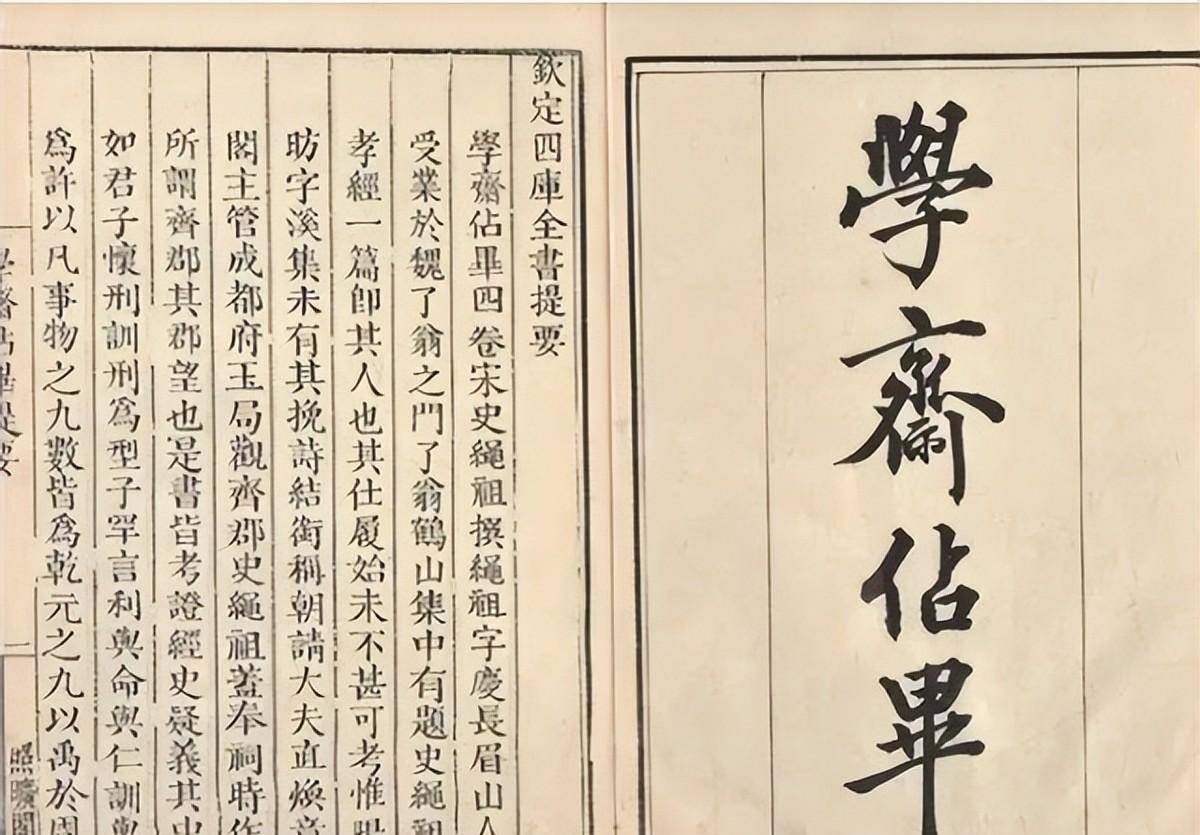 學齋佔畢
欽定四庫全書提要
學齋佔畢四卷宋史繩祖撰繩祖字慶長眉山人
受業於魏了翁之門了翁鶴山集中有題史繩祖
孝經一篇卽其人也其仕履始末不甚可考惟
昉字溪集末有其挽詩結銜稱朝請大夫直煥章
閣主管成都府玉局觀齊郡史繩祖蓋奉祠時作
所謂齊郡其郡望也是書皆考證經史疑義其中
如君子懷刑訓刑爲型子罕言利與命與仁訓與
爲許以凡事物之九數皆爲乾元之九以禹於
學齋佔畢提要
一
照曠閣